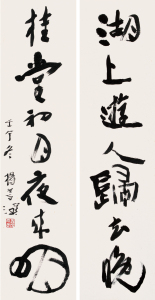 湖上遊人歸去晚
桂堂初月夜來明
楊善深